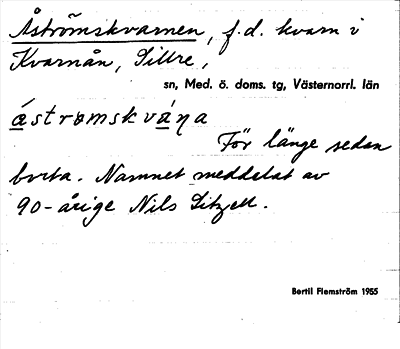 Åströmskvarnen, f.d. kvarn i
Kvarnån, Sillre,
sn, Med. ö. doms. tg, Västernorrl. län
åstrømskváṇa
För länge sedan
borta. Namnet meddelat av
90-årige Nils Sitzell.
Bertil Flemström 1955